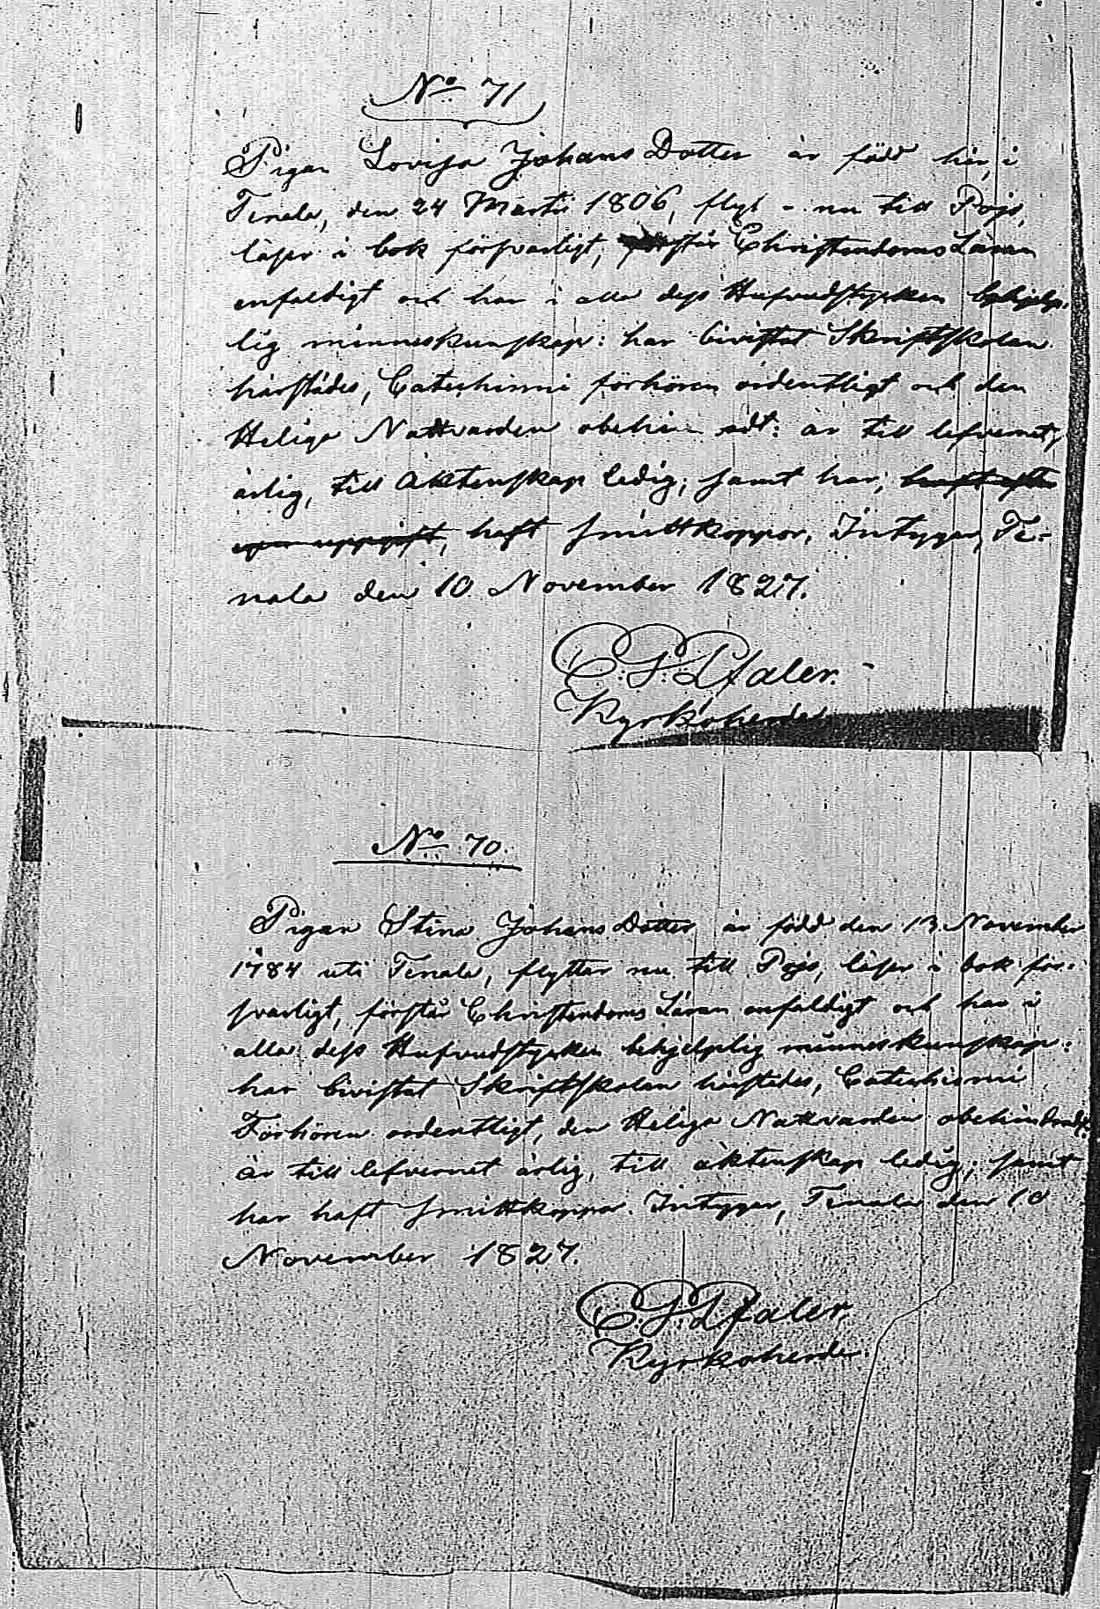 No 71
Pigan Lovisa Johans Dotter är född här i
Tenala, den 24 Martii 1806, flyt - nu till Pojo,
läser i bok försvarligt, förstår Christendoms Läran
enfaldigt och har i alla dess Hufvudstycken behjelp-
lig minneskunskap: har bivistat Skriftskolan
härstädes, Catechismi förhören ordentligt och den
Heliga Nattvarden obehin dt: är till lefvernet
ärlig, till äktenskap ledig, samt har, haft efter
egen uppgift, haft smittkoppor, Intygar, Te-
nala den 10 November 1827.
C. G. Pfaler.
Kyrkoherde
No 70.
Pigan Stina Johans Dotter är född den 13 November
1784 uti Tenala, flyttar nu till Pojo, läser i bok för-
svarligt, förstår Christendoms Läran enfaldigt och har i
alla dess Hufvudstycken behjelplig minneskunskap:
har bivistat Skriftskolan härstedes, Catechismi
Förhören ordentligt, den Heliga Nattvarden obehindradt:
är till lefvernet ärlig, till äktenskap ledig, samt
har haft smittkoppor. Intygar, Tenala den 10
November 1827.
C. G. Pfaler.
Kyrkoherde.